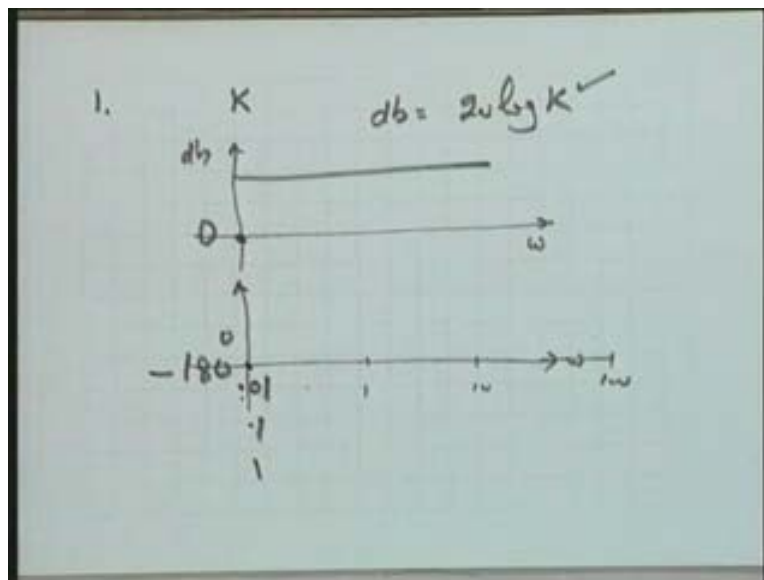 1. K db = 20 log K ✓
db
0
ω
0
-180
.01 1 10 ω 100
.1
1